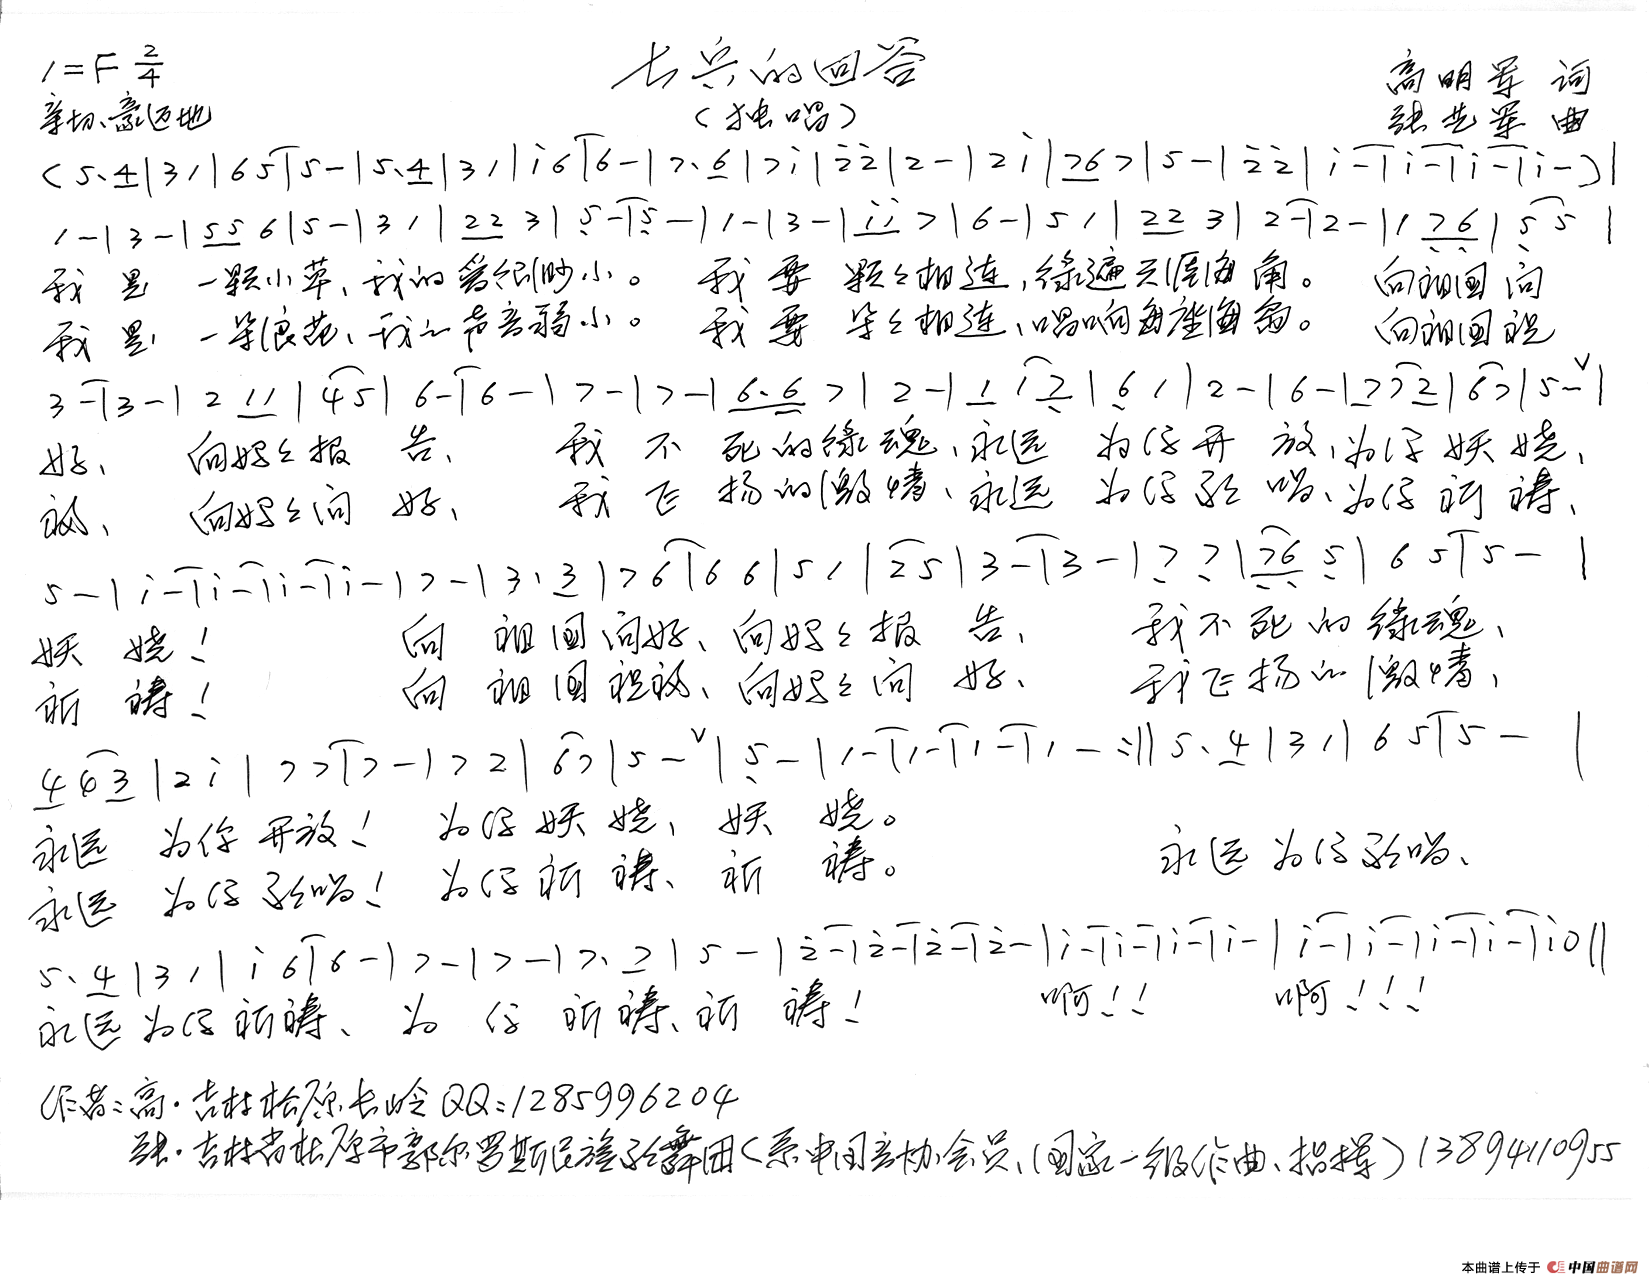 1=F 2/4
士兵的回答
高明军 词
亲切、豪迈地
(独唱)
张先军 曲
(5.4|31|65|5-|5.4|31|i6|6-|7.6|7i|2̇2̇|2-|2i|767|5-|2̇2̇|i-|i-|i-|i-)|
1-|3-|556|5-|31|223|5-|5-|1-|3-|ii7|6-|51|223|2-|2-|176|55|
我是一颗小草、我的爱很渺小。我要颗々相连,绿遍天涯海角。向祖国问
我是一朵浪花、我的声音弱小。我要朵々相连、唱响每座海岛。向祖国祝
3-|3-|211|45|6-|6-|7-|7-|6.67|2-|112|61|2-|6-|772|67|5-ˇ|
好、向妈々报告、我不死的绿魂、永远为你开放,为你妖娆、
福、向妈々问好、我飞扬的激情、永远为你歌唱、为你祈祷、
5-|i-|i-|i-|i-|7-|3.3|76|66|51|25|3-|3-|77|765|65|5-|
妖娆!向祖国问好、向妈々报告、我不死的绿魂、
祈祷!向祖国祝福、向妈々问好、我飞扬的激情、
443|2i|77|7-|72|67|5-ˇ|5-|1-|1-|1-|1-:‖5.4|31|65|5-|
永远为你开放!为你妖娆、妖娆。
永远为你歌唱!为你祈祷、祈祷。永远为你歌唱、
5.4|31|i6|6-|7-|7-|7.2|5-|2̇-|2̇-|2̇-|2̇-|i-|i-|i-|i-|i-|i-|i-|i-|i0‖
永远为你祈祷、为你祈祷、祈祷!啊!!啊!!!
作者:高·吉林松原长岭QQ:1285996204
张·吉林省松原市郭尔罗斯民族歌舞团(系中国音协会员、国家一级作曲、指挥)13894110955
本曲谱上传于 中国曲谱网